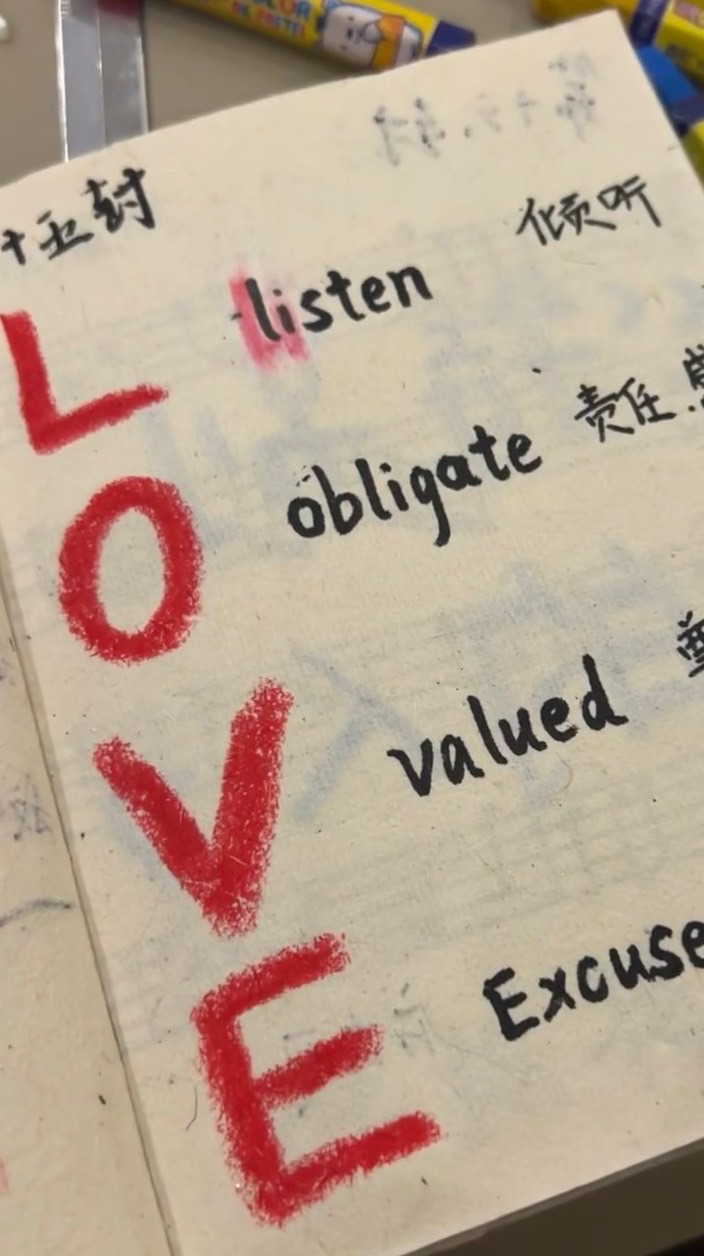 十五封
L listen 倾听
O obligate 责任感
V valued 尊
E Excuse